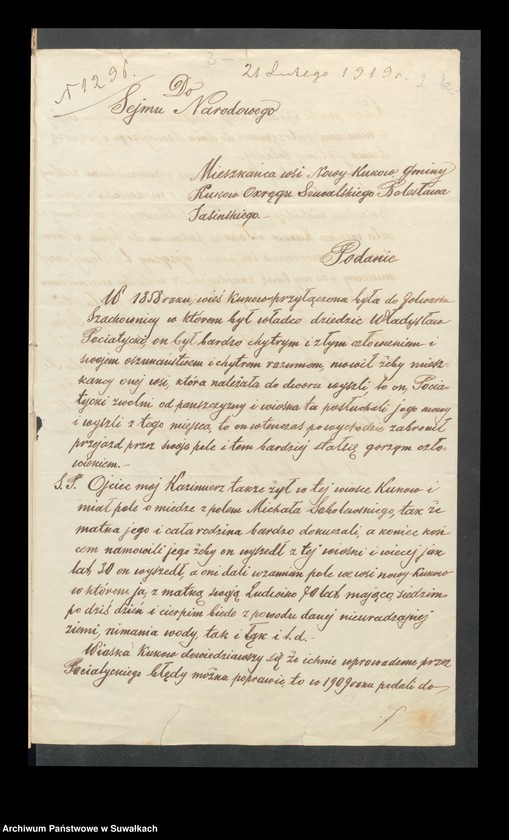 N 1296.
21 Lutego 1919 r.
Do
Sejmu Narodowego
Mieszkańca wsi Nowy-Kuków Gminy
Kuków Okręgu Suwalskiego Bolesława
Jasinskiego.-
Podanie
W 1858 roku, wieś Kuków przyłączona była do folwarku
Szachownicy w którem był władco dziedzic Władysław
Pociatycki, on był bardzo chytrym i złym człowieniem i
swojem oszukaństwem i chytrem rozumem, mówił żeby miesz-
kańcy onej wsi, która należała do dworu wyszli, to on, Pocia-
tycki zwolni od panszczyzny i wioska ta posłuchali jego mowy
i wyszli z tego miejsca, to on wtenczas po wychodzie zabronił
przejazd przez swoje pole i tem bardziej stałsię gorszym czło-
wieniem.-
S.P. Ojciec mój Kazimierz także żył w tej wiosce Kuków i
miał pole o miedze z polem Michała Sobolewskiego, tak że
matka jego i cała rodzina bardzo dokuczali, a koniec koń-
cem namówili jego żeby on wyszedł z tej wioski i więcej jak
lat, 30 on wyszedł, a oni dali wzamian pole we wsi nowy-Kuków
w którem ja, z matką swoją Ludwiką 70 lat, mająco, siedzim
po dziś dzień i cierpim biede z powodu danej nieuradzajnej
ziemi, nimania wody, tak i łąk i t.d.-
Wioska Kuków dowiedziawszy się że ichnie wprowadzone przez
Pociatyckiego błędy można poprawić, to w 1909 roku podali do
Archiwum Państwowe w Suwałkach